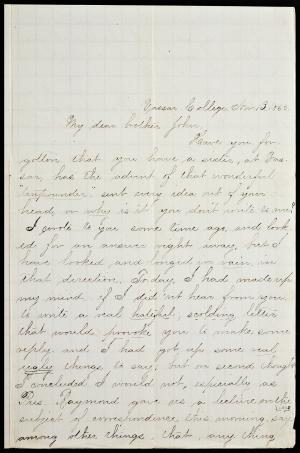 Vassar College, Nov. 13, 1865.
My dear brother John,
Have you for-
gotten that you have a sister, at Vas-
sar, has the advent of that wonderful
sent every idea out of your
head, or why is it you don't write to me?
I wrote to you some time ago, and look-
ed for an answer right away, but I
have looked and longed in vain, in
that direction. Today, I had made up
my mind if I did n't hear from you
to write a real hateful, scolding letter
that would provoke you to make some
reply and I had got up some real
ugly things to say; but on second thought
I concluded I would not, especially as
Pres. Raymond gave us a lecture on the
subject of correspondence, this morning, say-
among other things that any thing